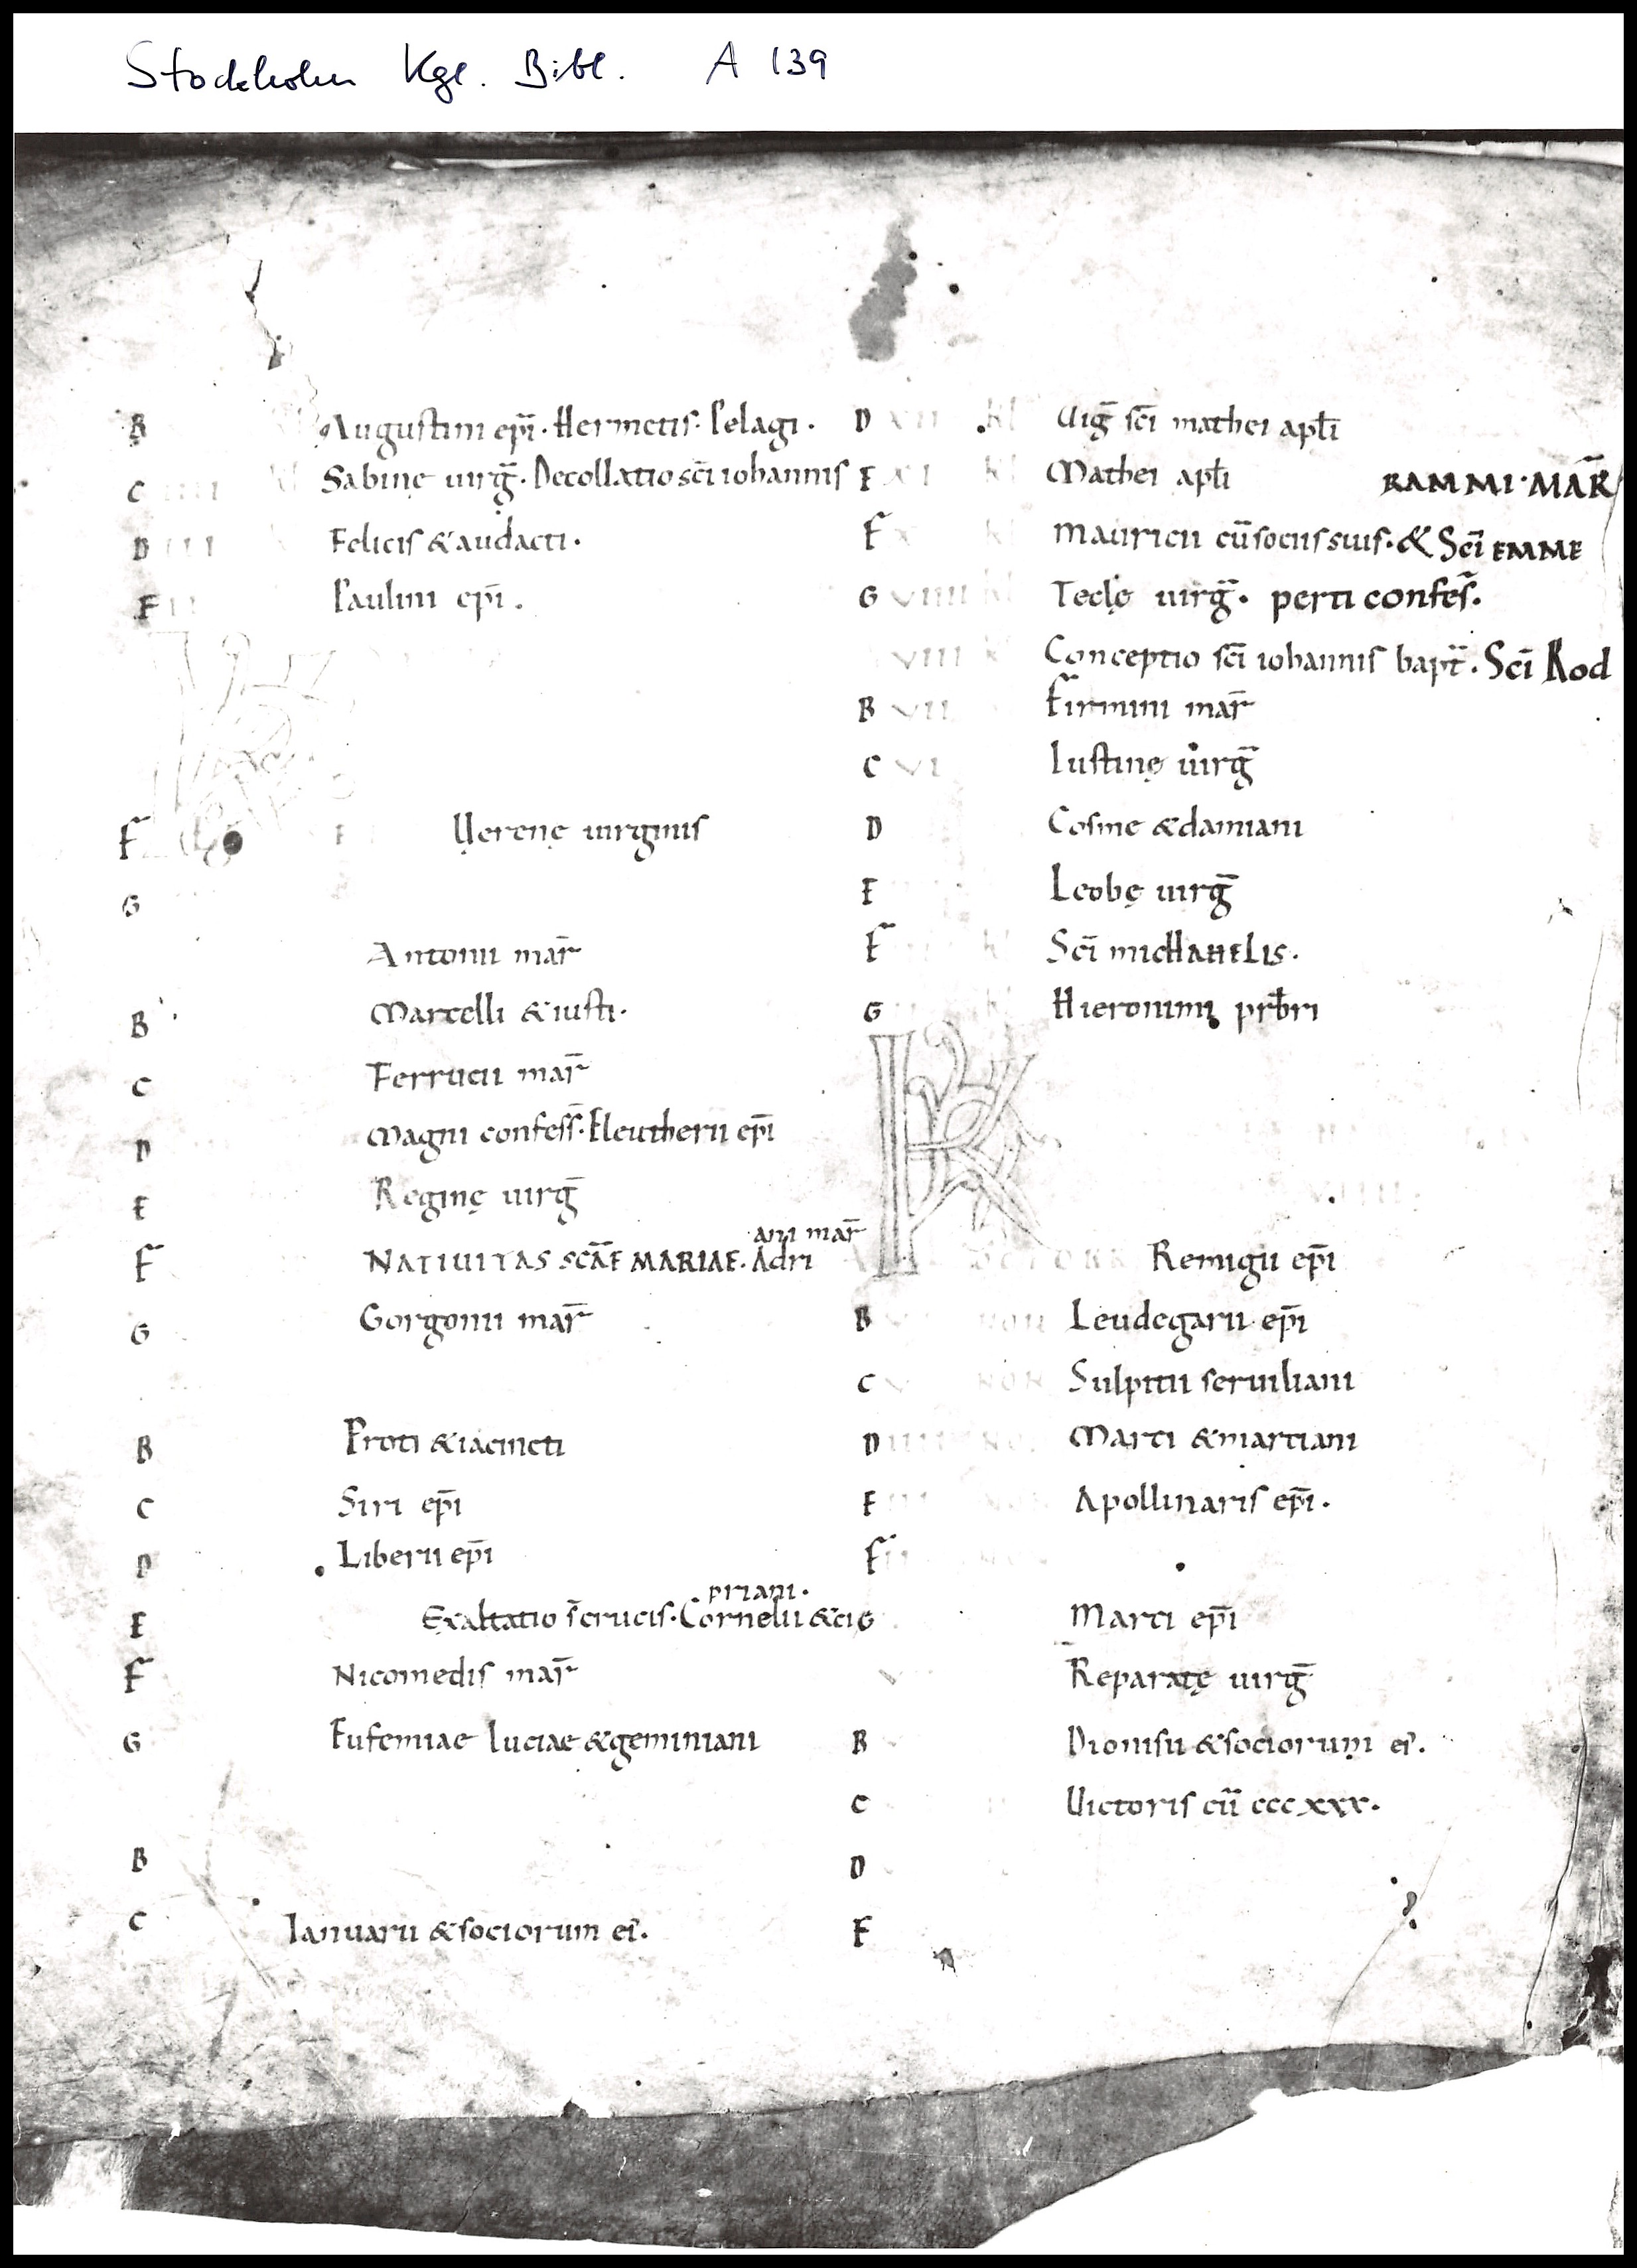 Stockholm Kgl. Bibl. A 139
B Augustini ep̄i · Hermetis · Pelagi ·
C IIII Sabinę uirḡ · Decollatio sc̄i iohannis
D III Felicis & audacti ·
E II Paulini ep̄i .
F Uerenę uirginis
G
Antonii mar̄
B Marcelli & iusti ·
C Ferrucii mar̄
D Magni confess̄ · Eleutherii ep̄i
E Reginę uirḡ
ani mar̄
F NATIUITAS SCĀE MARIAE · Adri
G Gorgonii mar̄
B Proti & iacincti
C Siri ep̄i
D Liberii ep̄i
priani ·
E Exaltatio s̄ crucis · Cornelii & ci
F Nicomedis mar̄
G Eufemiae luciae & geminiani
B
C Ianuarii & sociorum ei᷒ .
D XII kl Uiḡ sc̄i mathei apl̄i
E XI kl Mathei apl̄i RAMMI · MAR̄
F X kl Mauricii cū sociis suis · & Sc̄i EMME
G VIIII kl Teclę uirḡ · perti confes̄ .
VIII k Conceptio sc̄i iohannis bapt̄ . Sc̄i Rod
B VII Firmini mar̄
C VI Iustinę uirḡ
D Cosme & damiani
E Leobę uirḡ
F kl Sc̄i micHAHELIS .
G kl Hieronimi prb̄ri
K
OCTOBR Remigii ep̄i
B non Leudegarii ep̄i
C V NON Sulpitii seruiliani
D IIII NO Marci & martiani
E III Apollinaris ep̄i .
F II
G Marci ep̄i
V Reparatę uirḡ
B Dionisii & sociorum ei᷒ .
C Uictoris cū cccxxx .
D
E